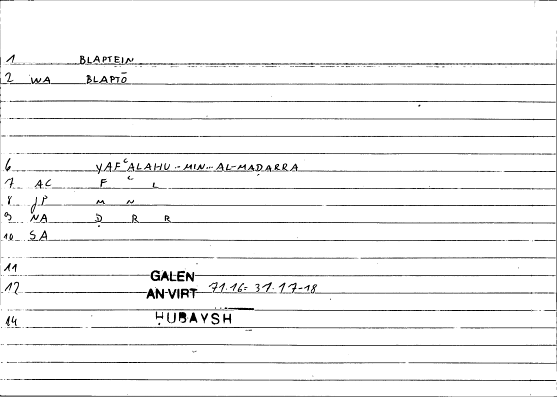 1 BLAPTEIN
2 WA BLAPTŌ
6 YAFʿALAHU - MIN - AL-MAḌARRA
7 AC F ʿ L
8 JP M N
9 NA Ḍ R R
10 SA
11
12 GALEN AN·VIRT 71.16 = 31.17-18
14 ḤUBAYSH